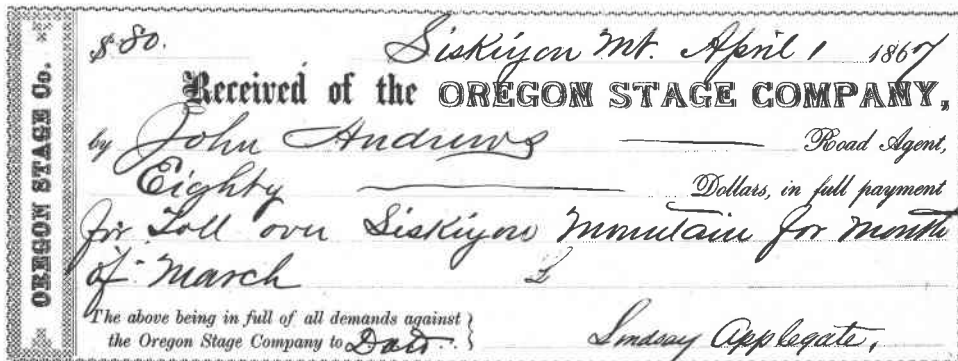 OREGON STAGE Co.
$ 80. Siskiyou Mt. April 1 1867
Received of the OREGON STAGE COMPANY,
by John Andrews Road Agent,
Eighty Dollars, in full payment
for Toll over Siskiyou Mountain for month
of March
The above being in full of all demands against
the Oregon Stage Company to Date.
Lindsay Applegate.